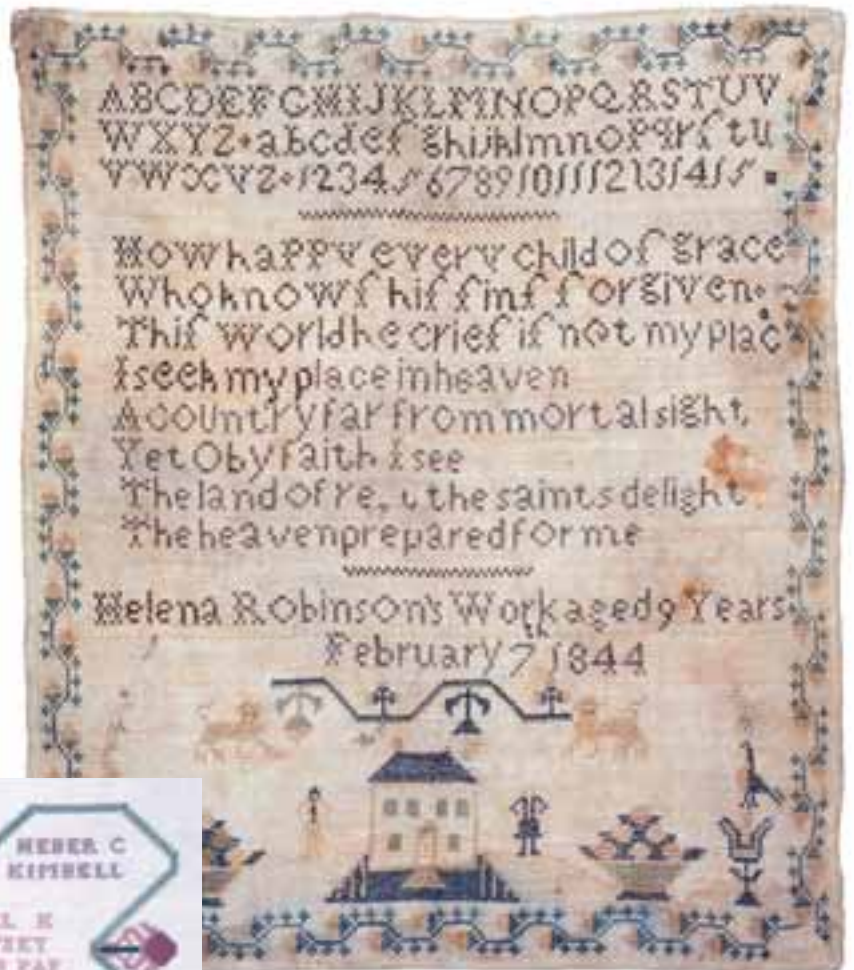 ABCDEFGHIJKLMNOPQRSTUV
WXYZ abcdef ghijklmnopqrſtu
vwxyz 123456789101112131415
How happy every child of grace
Who knowſ hiſ ſinſ forgiven
Thiſ world he crieſ iſ not my plac
I seek my place in heaven
A country far from mortal sight,
Yet O by faith I see
The land of the saints delight
The heaven prepared for me
Helena Robinson's Work aged 9 Years
February 7th 1844
HEBER C
KIMBELL